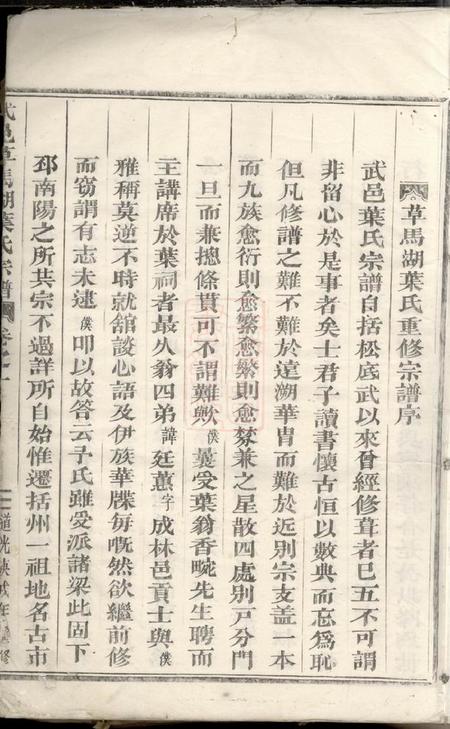 草馬湖葉氏重修宗譜序
武邑葉氏宗譜自括松底武以來曾經修葺者已五不可謂
非留心於是事者矣士君子讀書懷古恒以數典而忘爲恥
但凡修譜之難不難於遠溯華胄而難於近別宗支盖一本
而九族愈衍則愈繁愈繁則愈棼兼之星散四處別戸分門
一旦而兼摠條貫可不謂難歟僕曩受葉翁香畹先生聘而
主講席於葉祠者最久翁四弟諱廷蕙字成林邑貢士與僕
雅稱莫逆不時就舘談心語及伊族華牒每慨然欲繼前修
而窃謂有志未逮僕叩以故答云予氏雖受派諸梁此固下
邳南陽之所共宗不過詳所自始惟遷括州一祖地名古市
武邑草馬湖葉氏宗譜 卷之一
道光 戌年 修